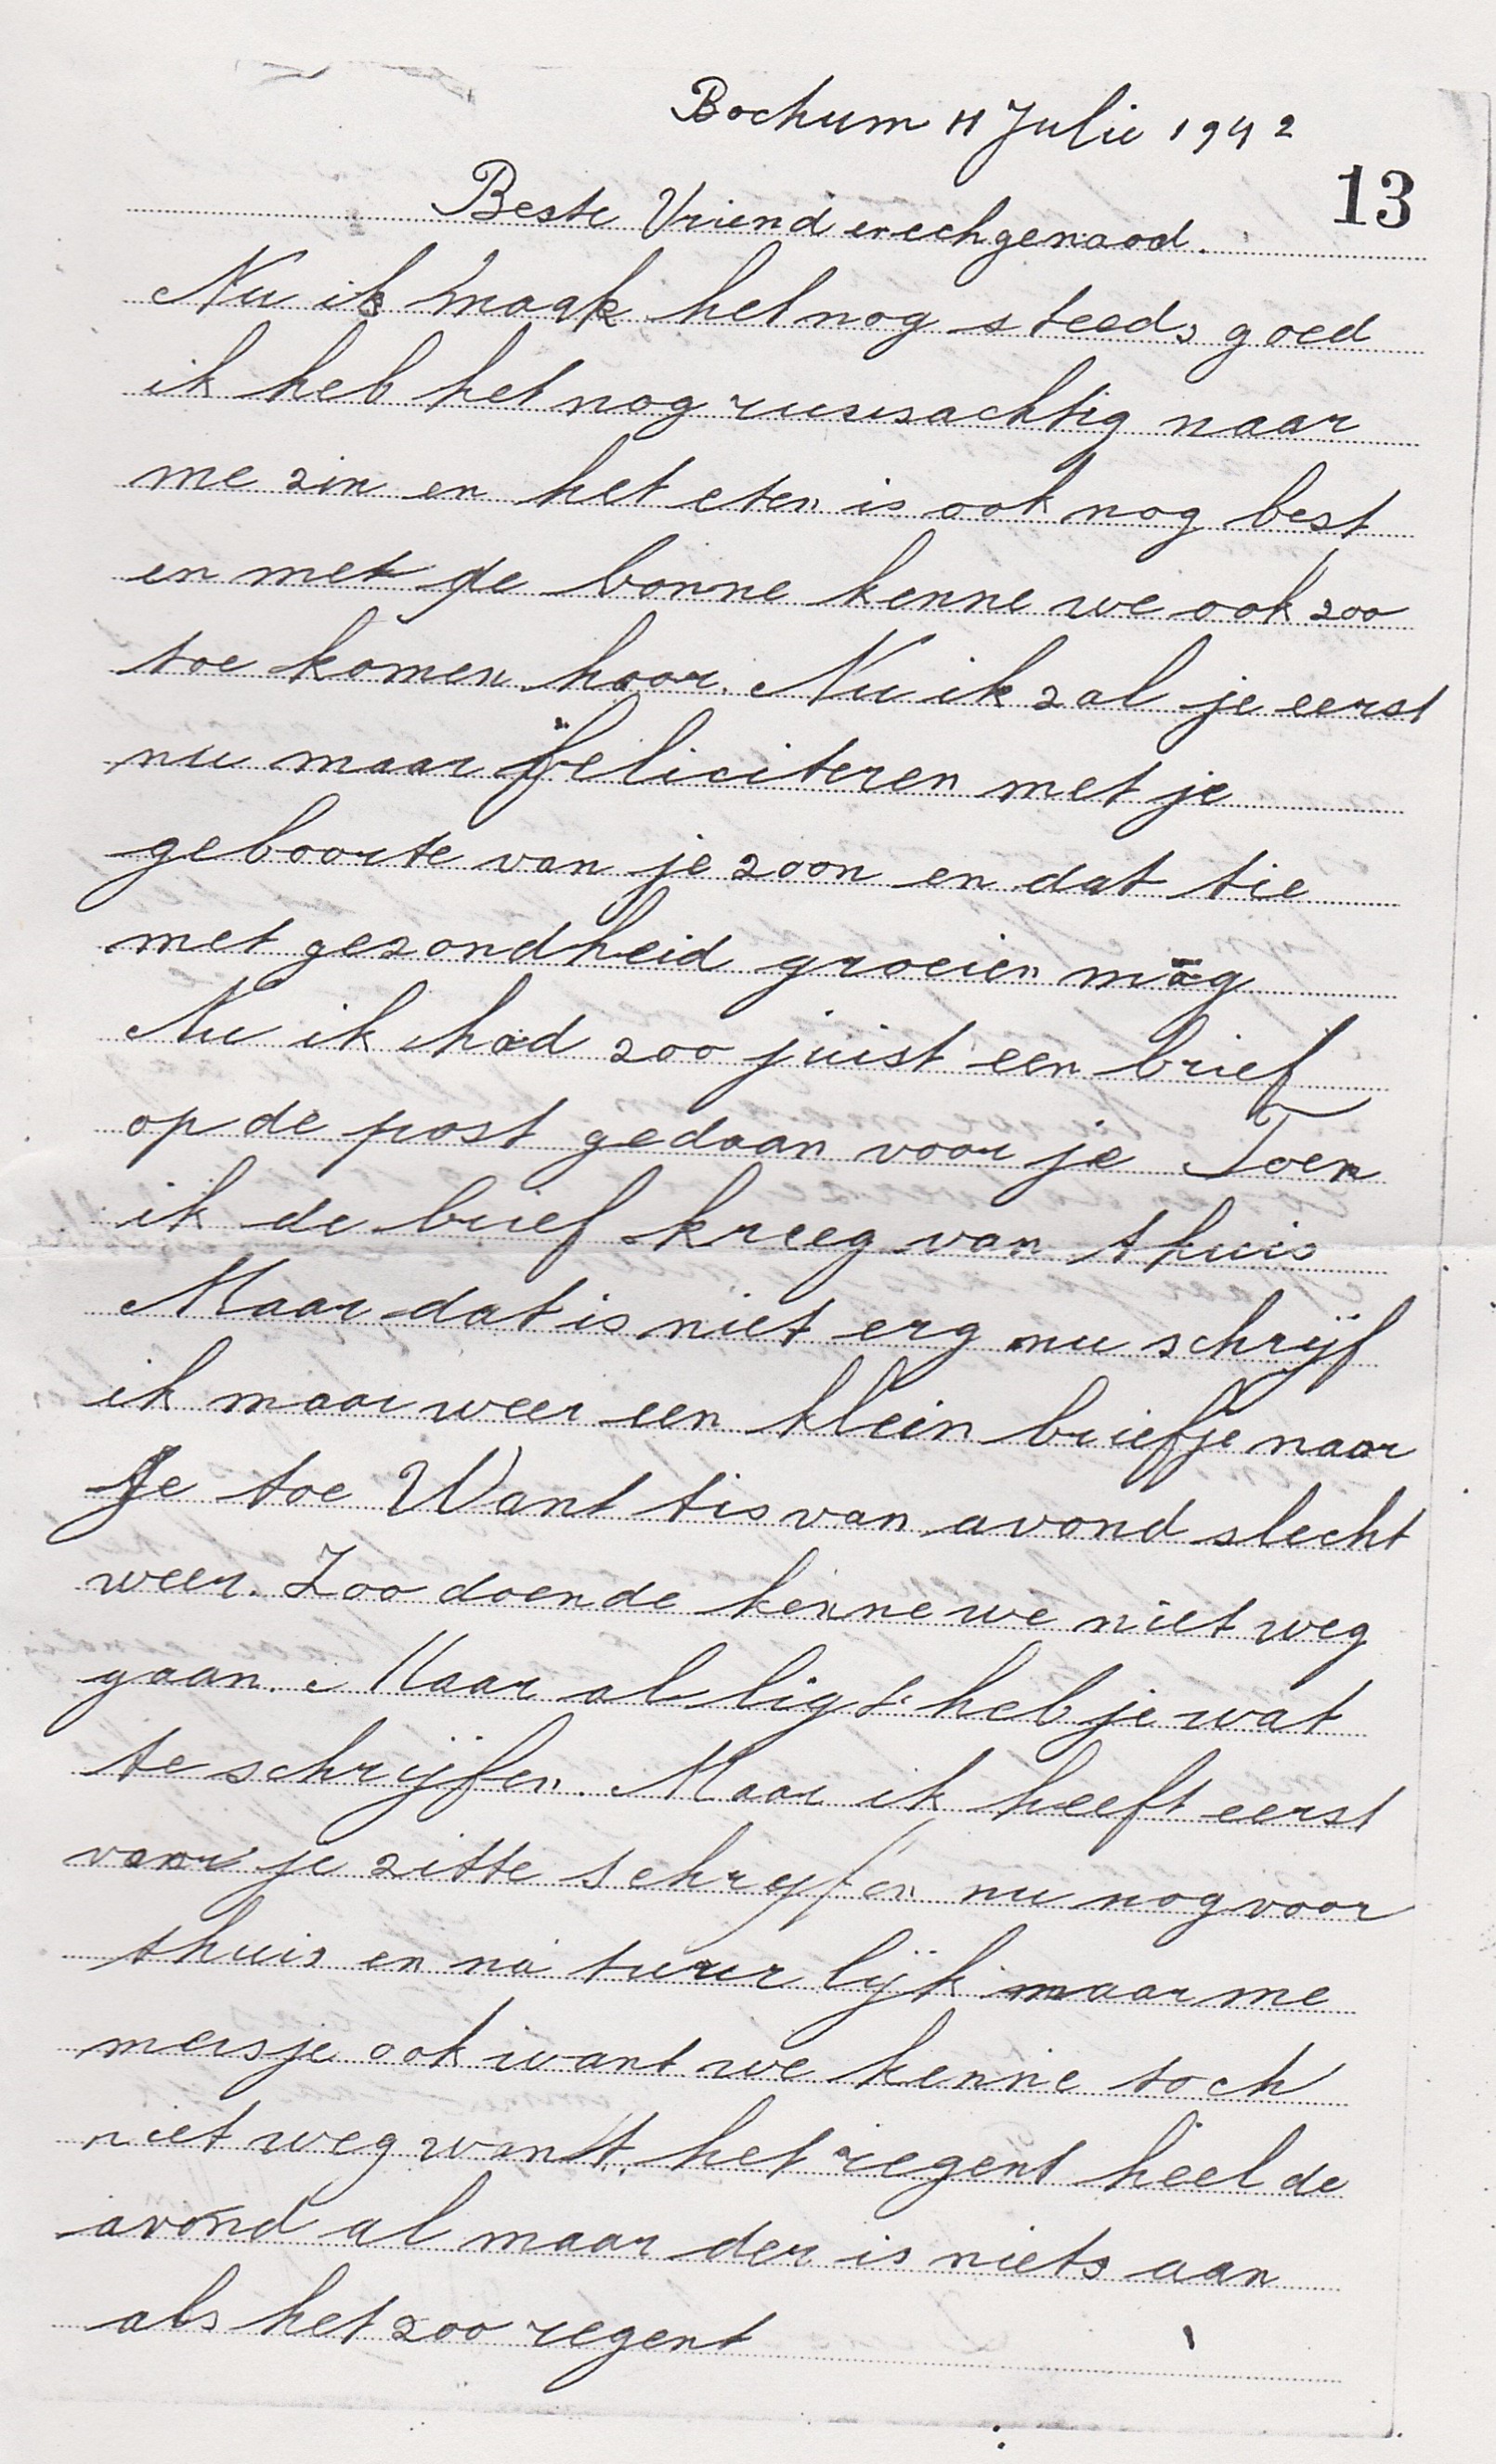 Bochum 11 Julie 1942
13
Beste Vriend en echgenaod.
Nu ik maak het nog steeds goed
ik heb het nog russachtig naar
me zin en het eten is ook nog best
en met de bonne kenne we ook zoo
toe komen hoor. Nu ik zal je eerst
nu maar feliciteren met je
geboorte van je zoon en dat tie
met gezondheid groeien mag
Nu ik had zoo juist een brief
op de post gedaan voor je Toen
ik de brief kreeg van thuis
Maar dat is niet erg nu schrijf
ik maar weer een klein briefje naar
Je toe Want tis van avond slecht
weer. Zoo doende kenne we niet weg
gaan. Maar al ligt heb je wat
te schrijfen. Maar ik heeft eerst
voor je zitte schrijfen nu nog voor
thuis en na tuurlijk maar me
meisje ook want we kenne toch
niet weg want het regent heel de
avond al maar der is niets aan
als het zoo regent